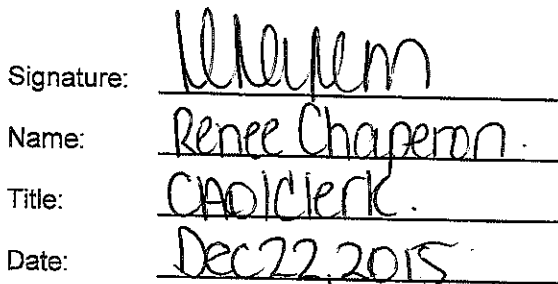 Signature:
Name: Renee Chaperon.
Title: CAO/Clerk.
Date: Dec 22, 2015